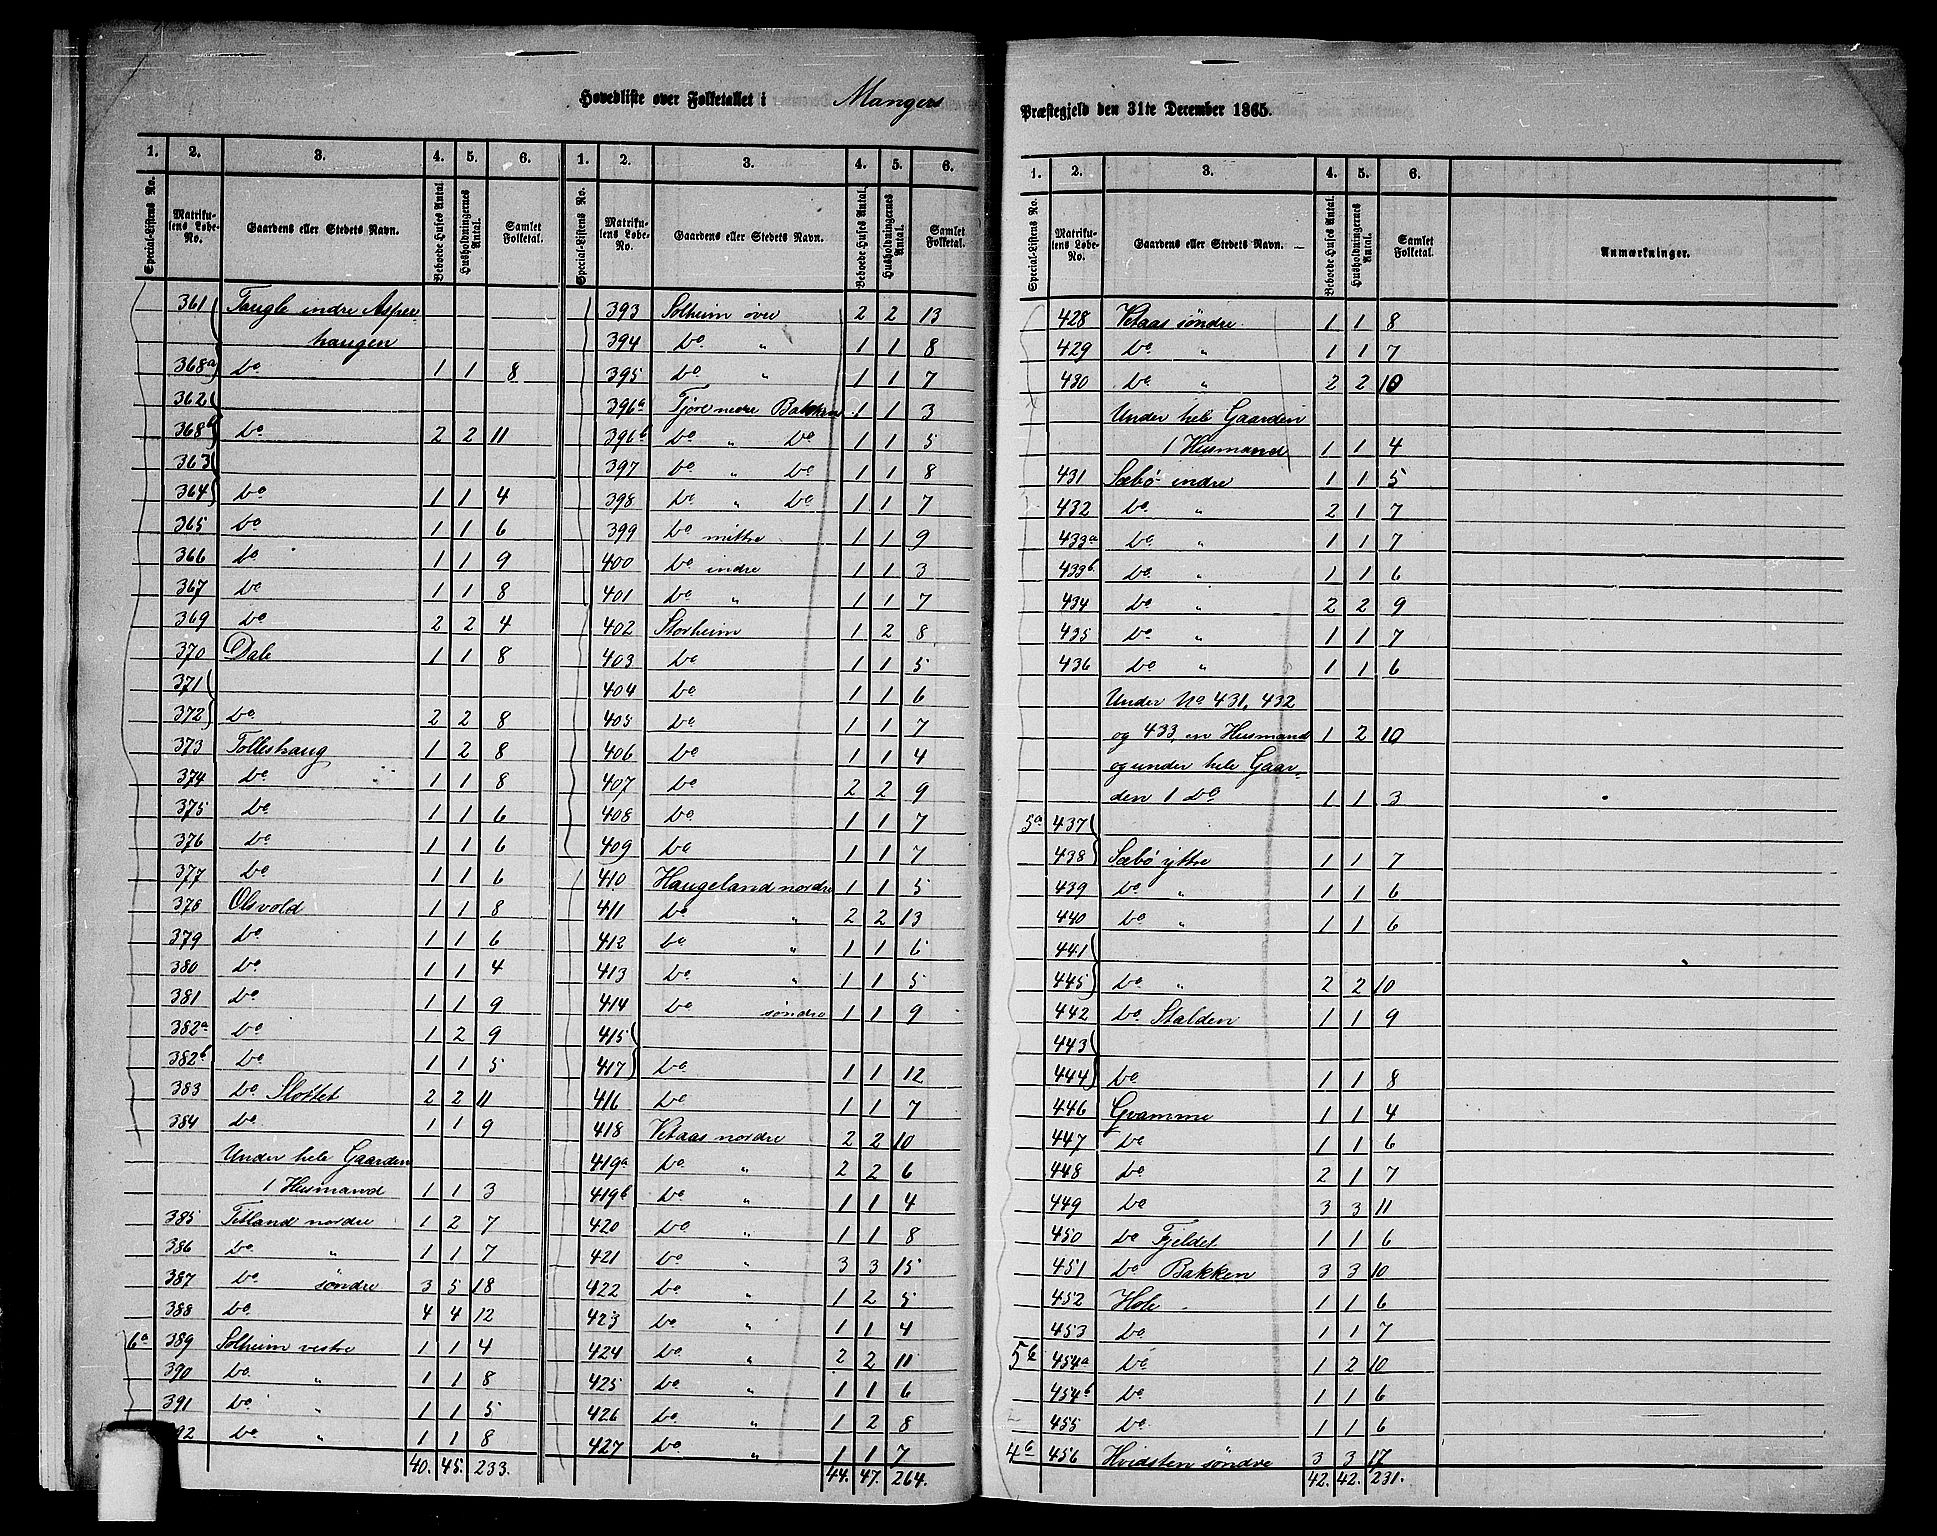 Hovedliste over Folketallet i Mangers Præstegjeld den 31te December 1865.
1. 2. 3. 4. 5. 6. 1. 2. 3. 4. 5. 6.
Special-Listens No. Matrikulens Løbe-No. Gaardens eller Stedets Navn. Beboede Huses Antal. Husholdningernes Antal. Samlet Folketal. Special-Listens No. Matrikulens Løbe-No. Gaardens eller Stedets Navn. Beboede Huses Antal. Husholdningernes Antal. Samlet Folketal.
361 Taugle indre Aspee
haugen
368a Do 1 1 8
362
368b Do 2 2 11
363
364 Do 1 1 4
365 Do 1 1 6
366 Do 1 1 9
367 Do 1 1 8
369 Do 2 2 4
370 Dale 1 1 8
371
372 Do 2 2 8
373 Tolleshaug 1 2 8
374 Do " 1 1 8
375 Do 1 1 6
376 Do 1 1 6
377 Do 1 1 6
378 Olsvold 1 1 8
379 Do 1 1 6
380 Do 1 1 4
381 Do 1 1 9
382a Do 1 2 9
382b Do 1 1 5
383 Do Slottet 2 2 11
384 Do 1 1 9
Under hele Gaarden
1 Husmand 1 1 3
385 Tetland nordre 1 2 7
386 Do " 1 1 7
387 Do søndre 3 5 18
388 Do 4 4 12
6a 389 Solheim vestre 1 1 4
390 Do " 1 1 8
391 Do " 1 1 5
92 Do " 1 1 8
40. 45. 233.
393 Solheim øvre 2 2 13
394 Do " 1 1 8
395 Do " 1 1 7
396a Tjore nedre Bakken 1 1 3
396b Do " Do 1 1 5
397 Do " Do 1 1 8
398 Do " Do 1 1 7
399 Do mittre 1 1 9
400 Do indre 1 1 3
401 Do " 1 1 7
402 Storheim 1 2 8
403 Do 1 1 5
404 Do 1 1 6
405 Do 1 1 7
406 Do 1 1 4
407 Do 2 2 9
408 Do 1 1 7
409 Do 1 1 7
410 Haugeland nordre 1 1 5
411 Do " 2 2 13
412 Do " 1 1 6
413 Do " 1 1 5
414 Do søndre 1 1 9
415
417 Do 1 1 12
416 Do 1 1 7
418 Vetaas nordre 2 2 10
419a Do " 2 2 6
419b Do " 1 1 4
420 Do " 1 1 8
421 Do " 3 3 15
422 Do " 1 2 5
423 Do " 1 1 4
424 Do " 2 2 11
425 Do " 1 1 6
426 Do " 1 2 8
427 Do " 1 1 7
44. 47. 264.
1. 2. 3. 4. 5. 6.
Special-Listens No. Matrikulens Løbe-No. Gaardens eller Stedets Navn. Beboede Huses Antal. Husholdningernes Antal. Samlet Folketal. Anmærkninger.
428 Vetaas søndre 1 1 8
429 Do " 1 1 7
430 Do " 2 2 10
Under hele Gaarden
1 Husmand 1 1 4
431 Sæbø indre 1 1 5
432 Do " 2 1 7
433a Do " 1 1 7
433b Do " 1 1 6
434 Do " 2 2 9
435 Do " 1 1 7
436 Do " 1 1 6
Under No 431, 432
og 433, en Husmand 1 2 10
og under hele Gaar-
den 1 Do 1 1 3
5a 437
438 Sæbø yttre 1 1 7
439 Do " 1 1 6
440 Do " 1 1 6
441
445 Do " 2 2 10
442 Do Stalden 1 1 9
443
444 Do 1 1 8
446 Gvamme 1 1 4
447 Do 1 1 6
448 Do 2 1 7
449 Do 3 3 11
450 Do Fjeldet 1 1 6
451 Do Bakken 3 3 10
452 Hole 1 1 6
453 Do 1 1 7
5b 454a Do 1 2 10
454b Do 1 1 6
455 Do 1 1 6
4b 456 Hvidsten søndre 3 3 17
42. 42. 231.